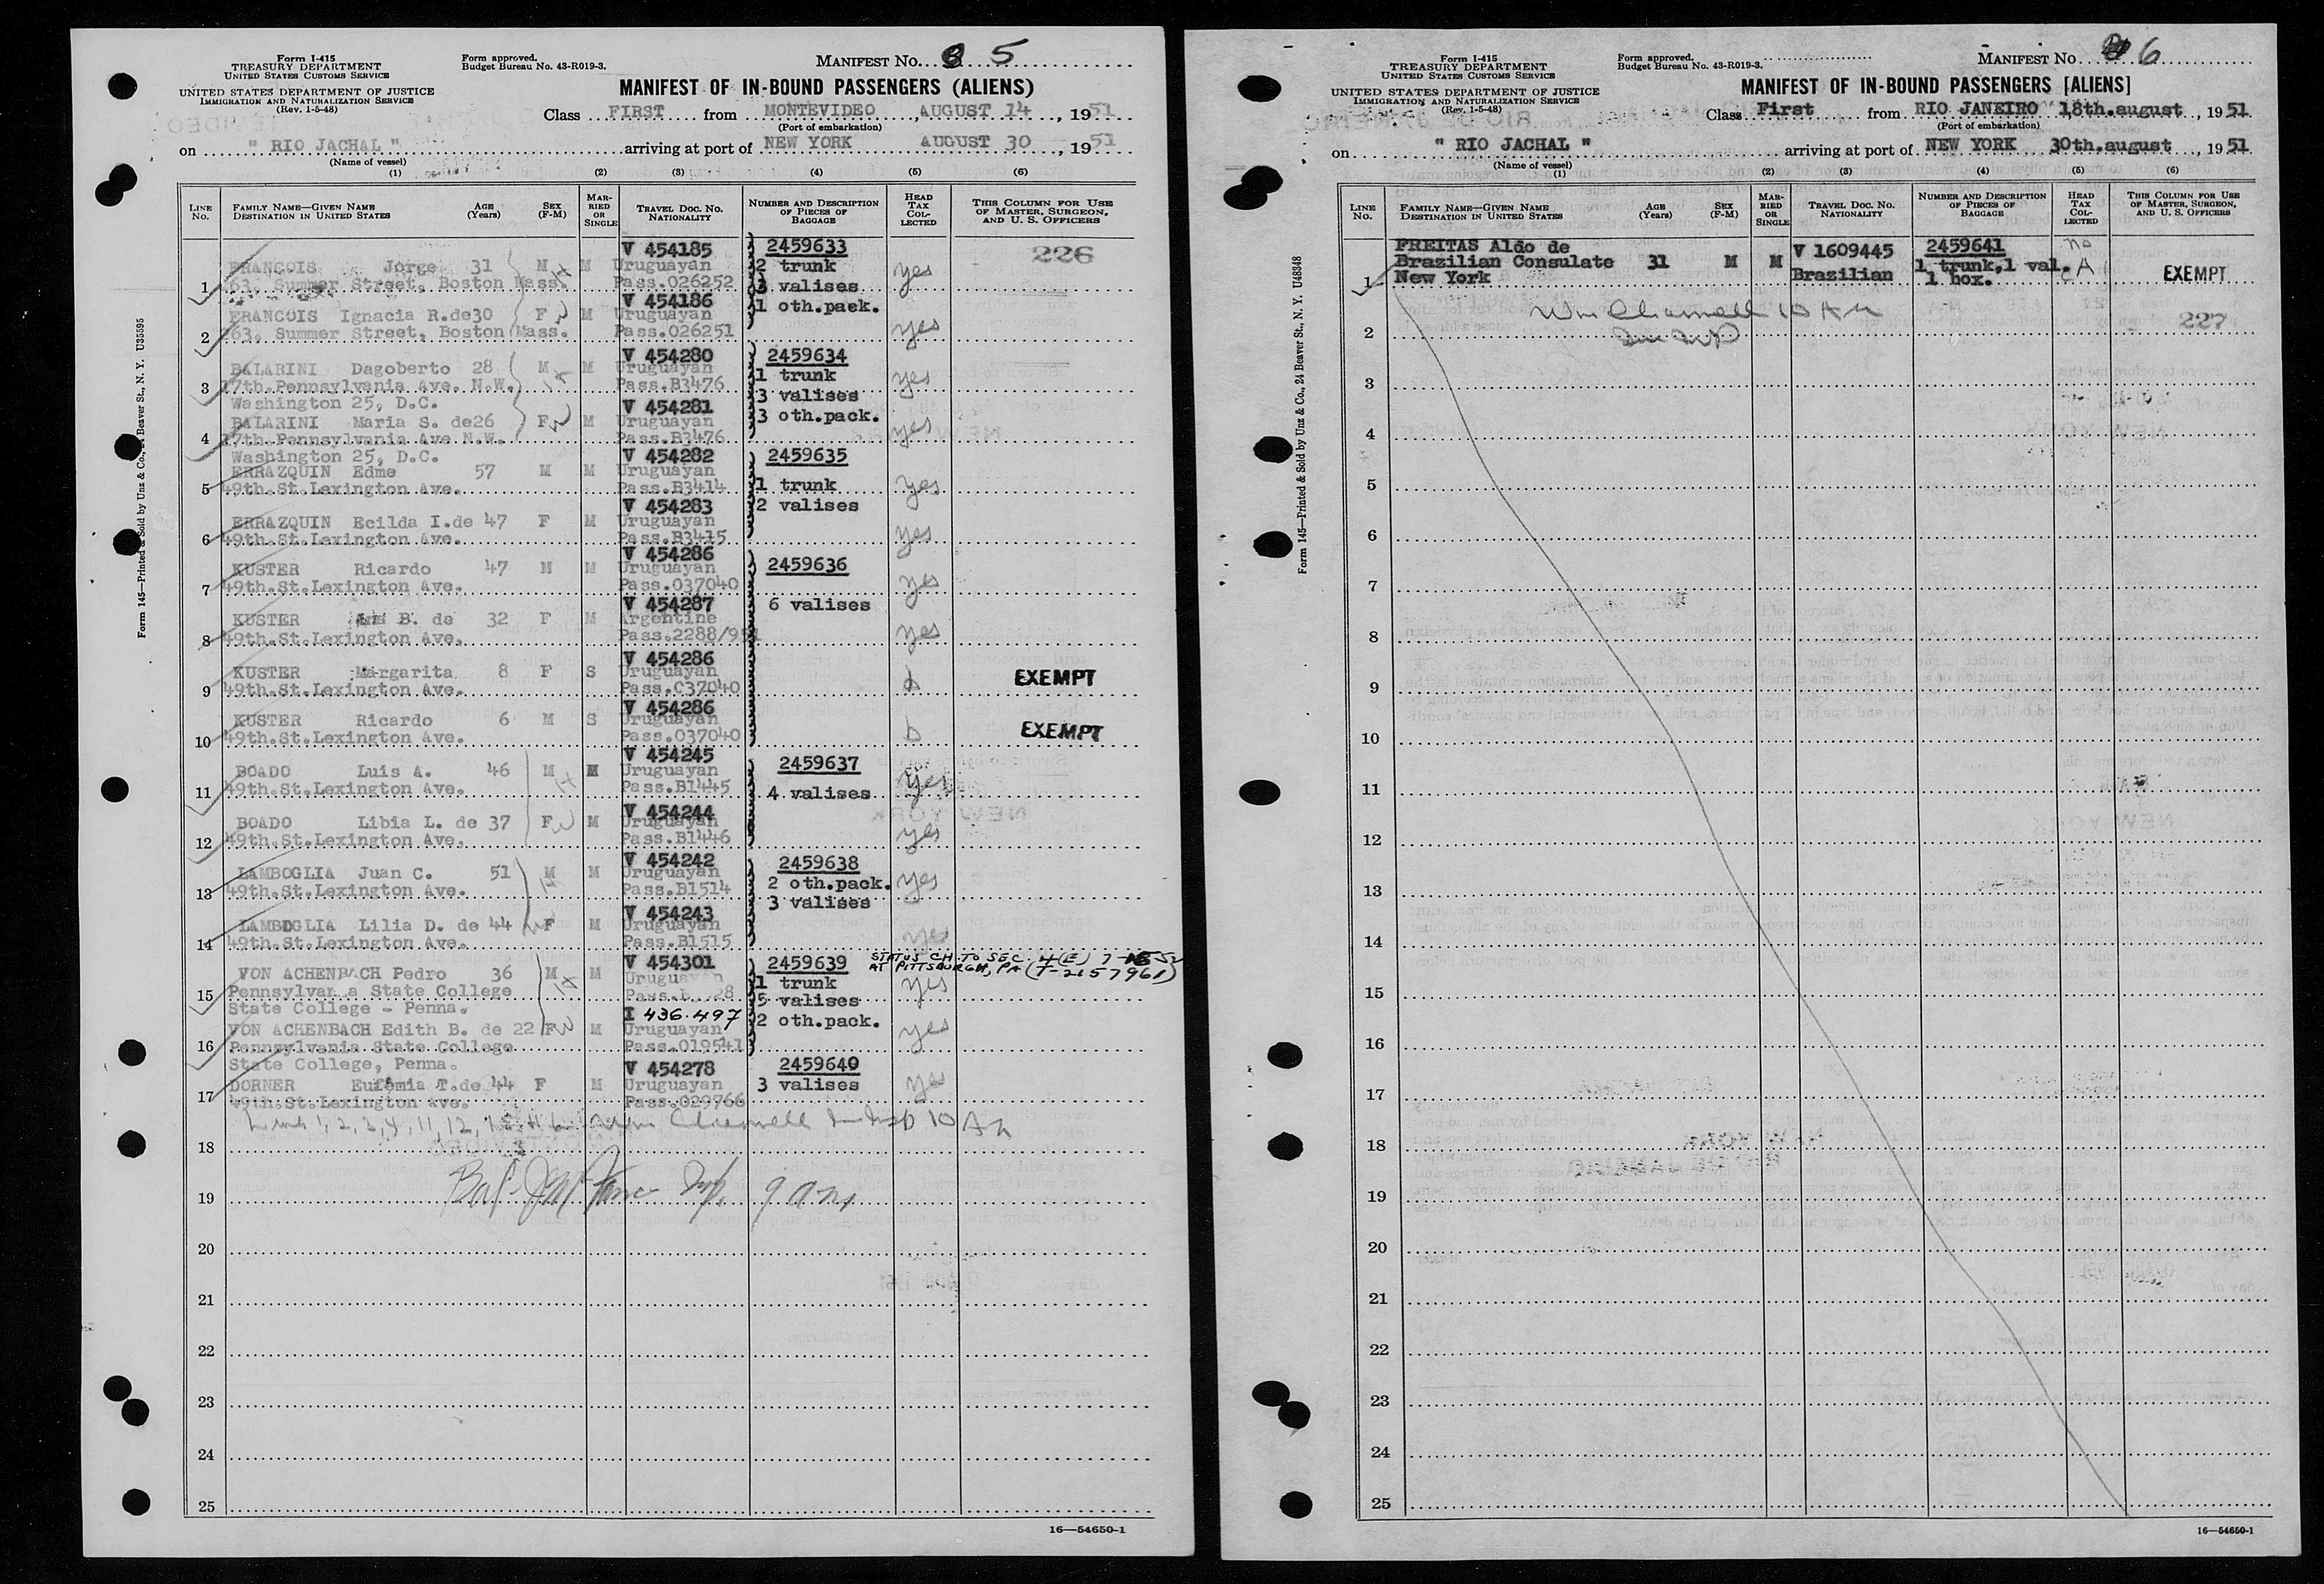 Form I-415
TREASURY DEPARTMENT
UNITED STATES CUSTOMS SERVICE
UNITED STATES DEPARTMENT OF JUSTICE
IMMIGRATION AND NATURALIZATION SERVICE
(Rev. 1-5-48)
Form approved.
Budget Bureau No. 43-R019-3.
MANIFEST No. 5
MANIFEST OF IN-BOUND PASSENGERS (ALIENS)
Class FIRST from MONTEVIDEO, AUGUST 14, 1951
(Port of embarkation)
on " RIO JACHAL " arriving at port of NEW YORK AUGUST 30, 1951
(Name of vessel)
(1) (2) (3) (4) (5) (6)
LINE No. FAMILY NAME—GIVEN NAME DESTINATION IN UNITED STATES AGE (Years) SEX (F-M) MARRIED OR SINGLE TRAVEL DOC. NO. NATIONALITY NUMBER AND DESCRIPTION OF PIECES OF BAGGAGE HEAD TAX COLLECTED THIS COLUMN FOR USE OF MASTER, SURGEON, AND U. S. OFFICERS
226
V 454185 2459633
FRANCOIS Jorge 31 M M Uruguayan 2 trunk yes
1 63, Summer Street, Boston Mass. Pass.026252 3 valises
V 454186 1 oth.pack.
FRANCOIS Ignacia R.de30 F M Uruguayan
2 63, Summer Street, Boston Mass. Pass.026251 yes
V 454280 2459634
BALARINI Dagoberto 28 M M Uruguayan 1 trunk yes
3 17th.Pennsylvania Ave. N.W. Pass.B3476 3 valises
Washington 25, D.C. V 454281 3 oth.pack.
BALARINI Maria S. de26 F M Uruguayan yes
4 17th.Pennsylvania Ave N.W. Pass.B3476
Washington 25, D.C. V 454282 2459635
ERRAZQUIN Edme 57 M M Uruguayan
5 49th.St.Lexington Ave. Pass.B3414 1 trunk yes
V 454283 2 valises
ERRAZQUIN Ecilda I.de 47 F M Uruguayan
6 49th.St.Lexington Ave. Pass.B3415 yes
V 454286 2459636
KUSTER Ricardo 47 M M Uruguayan
7 49th.St.Lexington Ave. Pass.037040 yes
V 454287 6 valises
KUSTER B. de 32 F M Argentine
8 49th.St.Lexington Ave. Pass.2288/951 yes
V 454286
KUSTER Margarita 8 F S Uruguayan EXEMPT
9 49th.St.Lexington Ave. Pass.C37040
V 454286
KUSTER Ricardo 6 M S Uruguayan EXEMPT
10 49th.St.Lexington Ave. Pass.037040
V 454245 2459637
BOADO Luis A. 46 M M Uruguayan yes
11 49th.St.Lexington Ave. Pass.B1445 4 valises
V 454244
BOADO Libia L. de 37 F M Uruguayan
12 49th.St.Lexington Ave. Pass.B1446 yes
V 454242 2459638
LAMBOGLIA Juan C. 51 M M Uruguayan 2 oth.pack. yes
13 49th.St.Lexington Ave. Pass.B1514 3 valises
V 454243
LAMBOGLIA Lilia D. de 44 F M Uruguayan
14 49th.St.Lexington Ave. Pass.B1515 yes
STATUS CH. TO SEC. 4(E)
AT PITTSBURGH, PA (T-2157961)
V 454301 2459639
VON ACHENBACH Pedro 36 M M 1 trunk yes
15 Pennsylvan a State College 5 valises
State College - Penna. I 436.497 2 oth.pack.
VON ACHENBACH Edith B. de 22 F M Uruguayan yes
16 Pennsylvania State College Pass.019541
State College, Penna. V 454278 2459640
DORNER Eufemia T.de 44 F M Uruguayan 3 valises yes
17 49th.St.Lexington Ave. Pass.029766
18
19 9 am
20
21
22
23
24
25
16—54650-1
Form 145—Printed & Sold by Unz & Co., 24 Beaver St., N. Y. U35595
Form I-415
TREASURY DEPARTMENT
UNITED STATES CUSTOMS SERVICE
UNITED STATES DEPARTMENT OF JUSTICE
IMMIGRATION AND NATURALIZATION SERVICE
(Rev. 1-5-48)
Form approved.
Budget Bureau No. 43-R019-3.
MANIFEST No 6
MANIFEST OF IN-BOUND PASSENGERS [ALIENS]
Class First from RIO JANEIRO 18th.august, 1951
(Port of embarkation)
on " RIO JACHAL " arriving at port of NEW YORK 30th.august, 1951
(Name of vessel)
(1) (2) (3) (4) (5) (6)
LINE No. FAMILY NAME—GIVEN NAME DESTINATION IN UNITED STATES AGE (Years) SEX (F-M) MARRIED OR SINGLE TRAVEL DOC. NO. NATIONALITY NUMBER AND DESCRIPTION OF PIECES OF BAGGAGE HEAD TAX COLLECTED THIS COLUMN FOR USE OF MASTER, SURGEON, AND U. S. OFFICERS
FREITAS Aldo de V 1609445 2459641 no
Brazilian Consulate 31 M M 1 trunk,1 val.
1 New York Brazilian 1 box. EXEMPT
227
2
3
4
5
6
7
8
9
10
11
12
13
14
15
16
17
18
19
20
21
22
23
24
25
16—54650-1
Form 145—Printed & Sold by Unz & Co., 24 Beaver St., N. Y. U48348